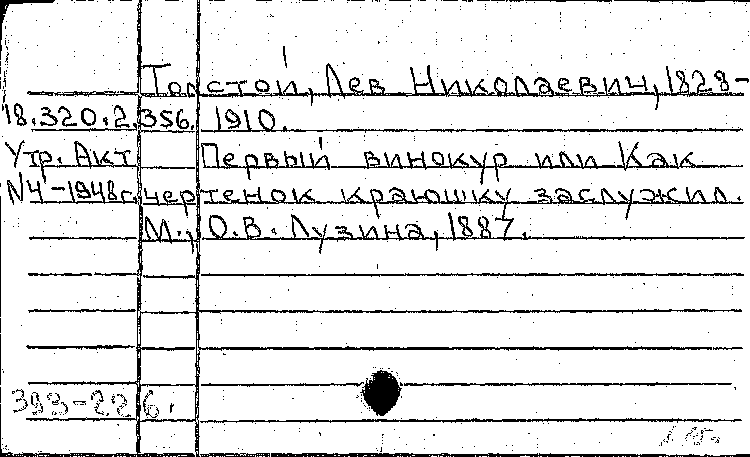 Толстой, Лев Николаевич, 1828-
18.320.2.356. 1910.
Утр. Акт Первый винокур или Как
№4-1948г. чертенок краюшку заслужил.
М., О.В. Лузина, 1887.
393-226.